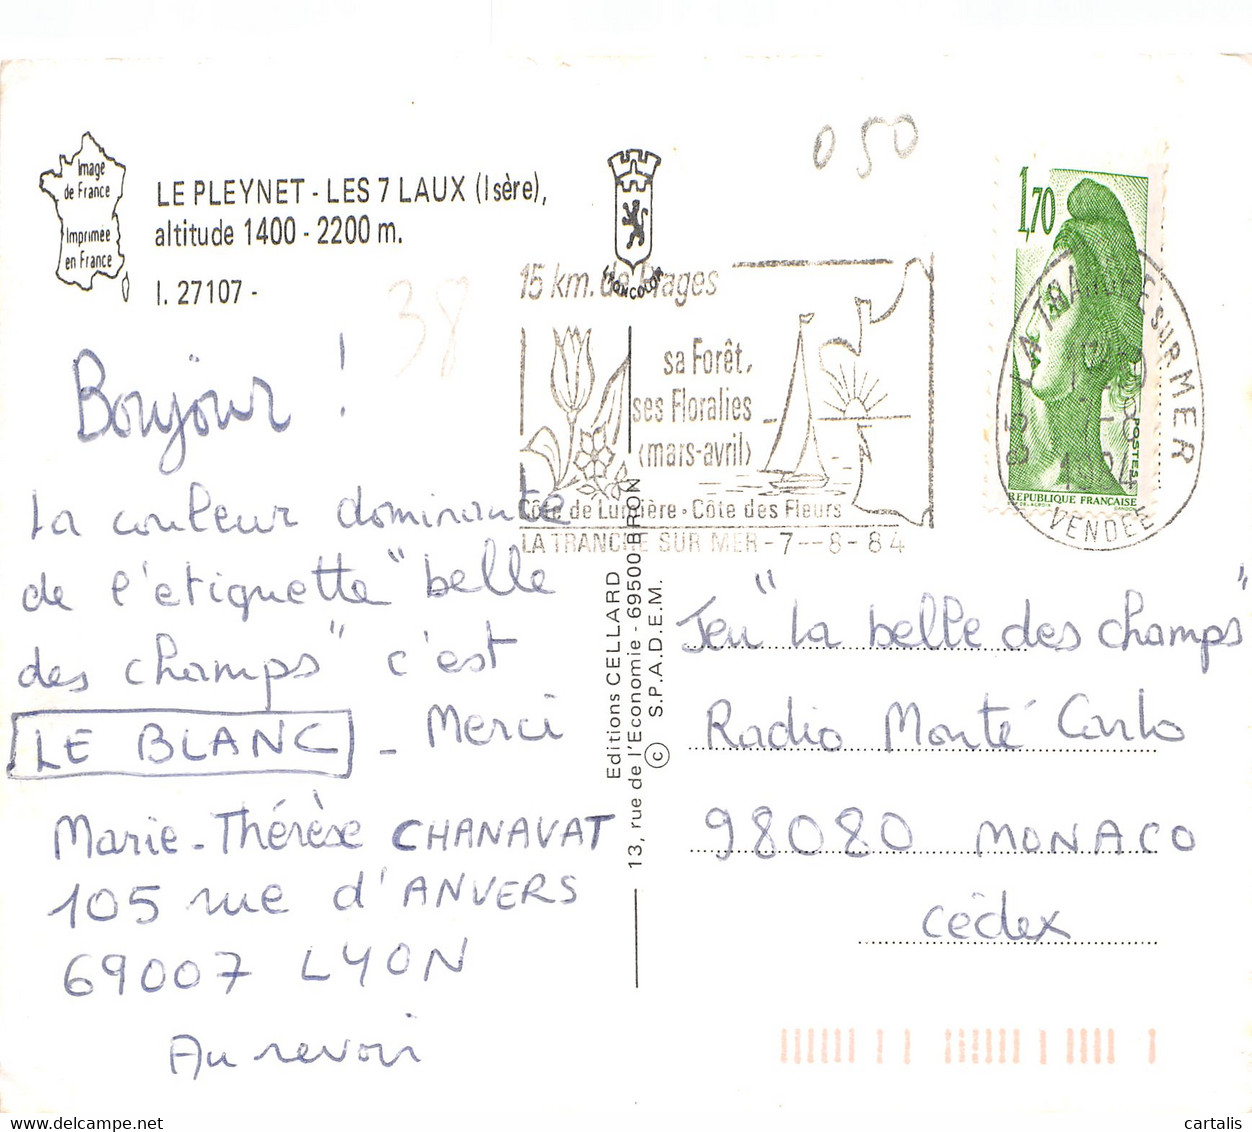 Image
de France
Imprimée
en France
LE PLEYNET - LES 7 LAUX (Isère),
altitude 1400 - 2200 m.
I. 27107 -
050
38
Bonjour !
La couleur dominante
de l'étiquette "belle
des champs" c'est
LE BLANC - Merci
Marie-Thérèse CHANAVAT
105 rue d'ANVERS
69007 LYON
Au revoir
15 km. de Plages
sa Forêt,
ses Floralies
(mars-avril)
Côte de Lumière - Côte des Fleurs
LA TRANCHE SUR MER -7--8-84
Editions CELLARD
13, rue de l'Economie - 69500 BRON
© S.P.A.D.E.M.
1,70
POSTES
REPUBLIQUE FRANÇAISE
LA TRANCHE SUR MER
VENDEE
Jeu "La belle des champs"
Radio Monté Carlo
98080 MONACO
Cédex
cartalis